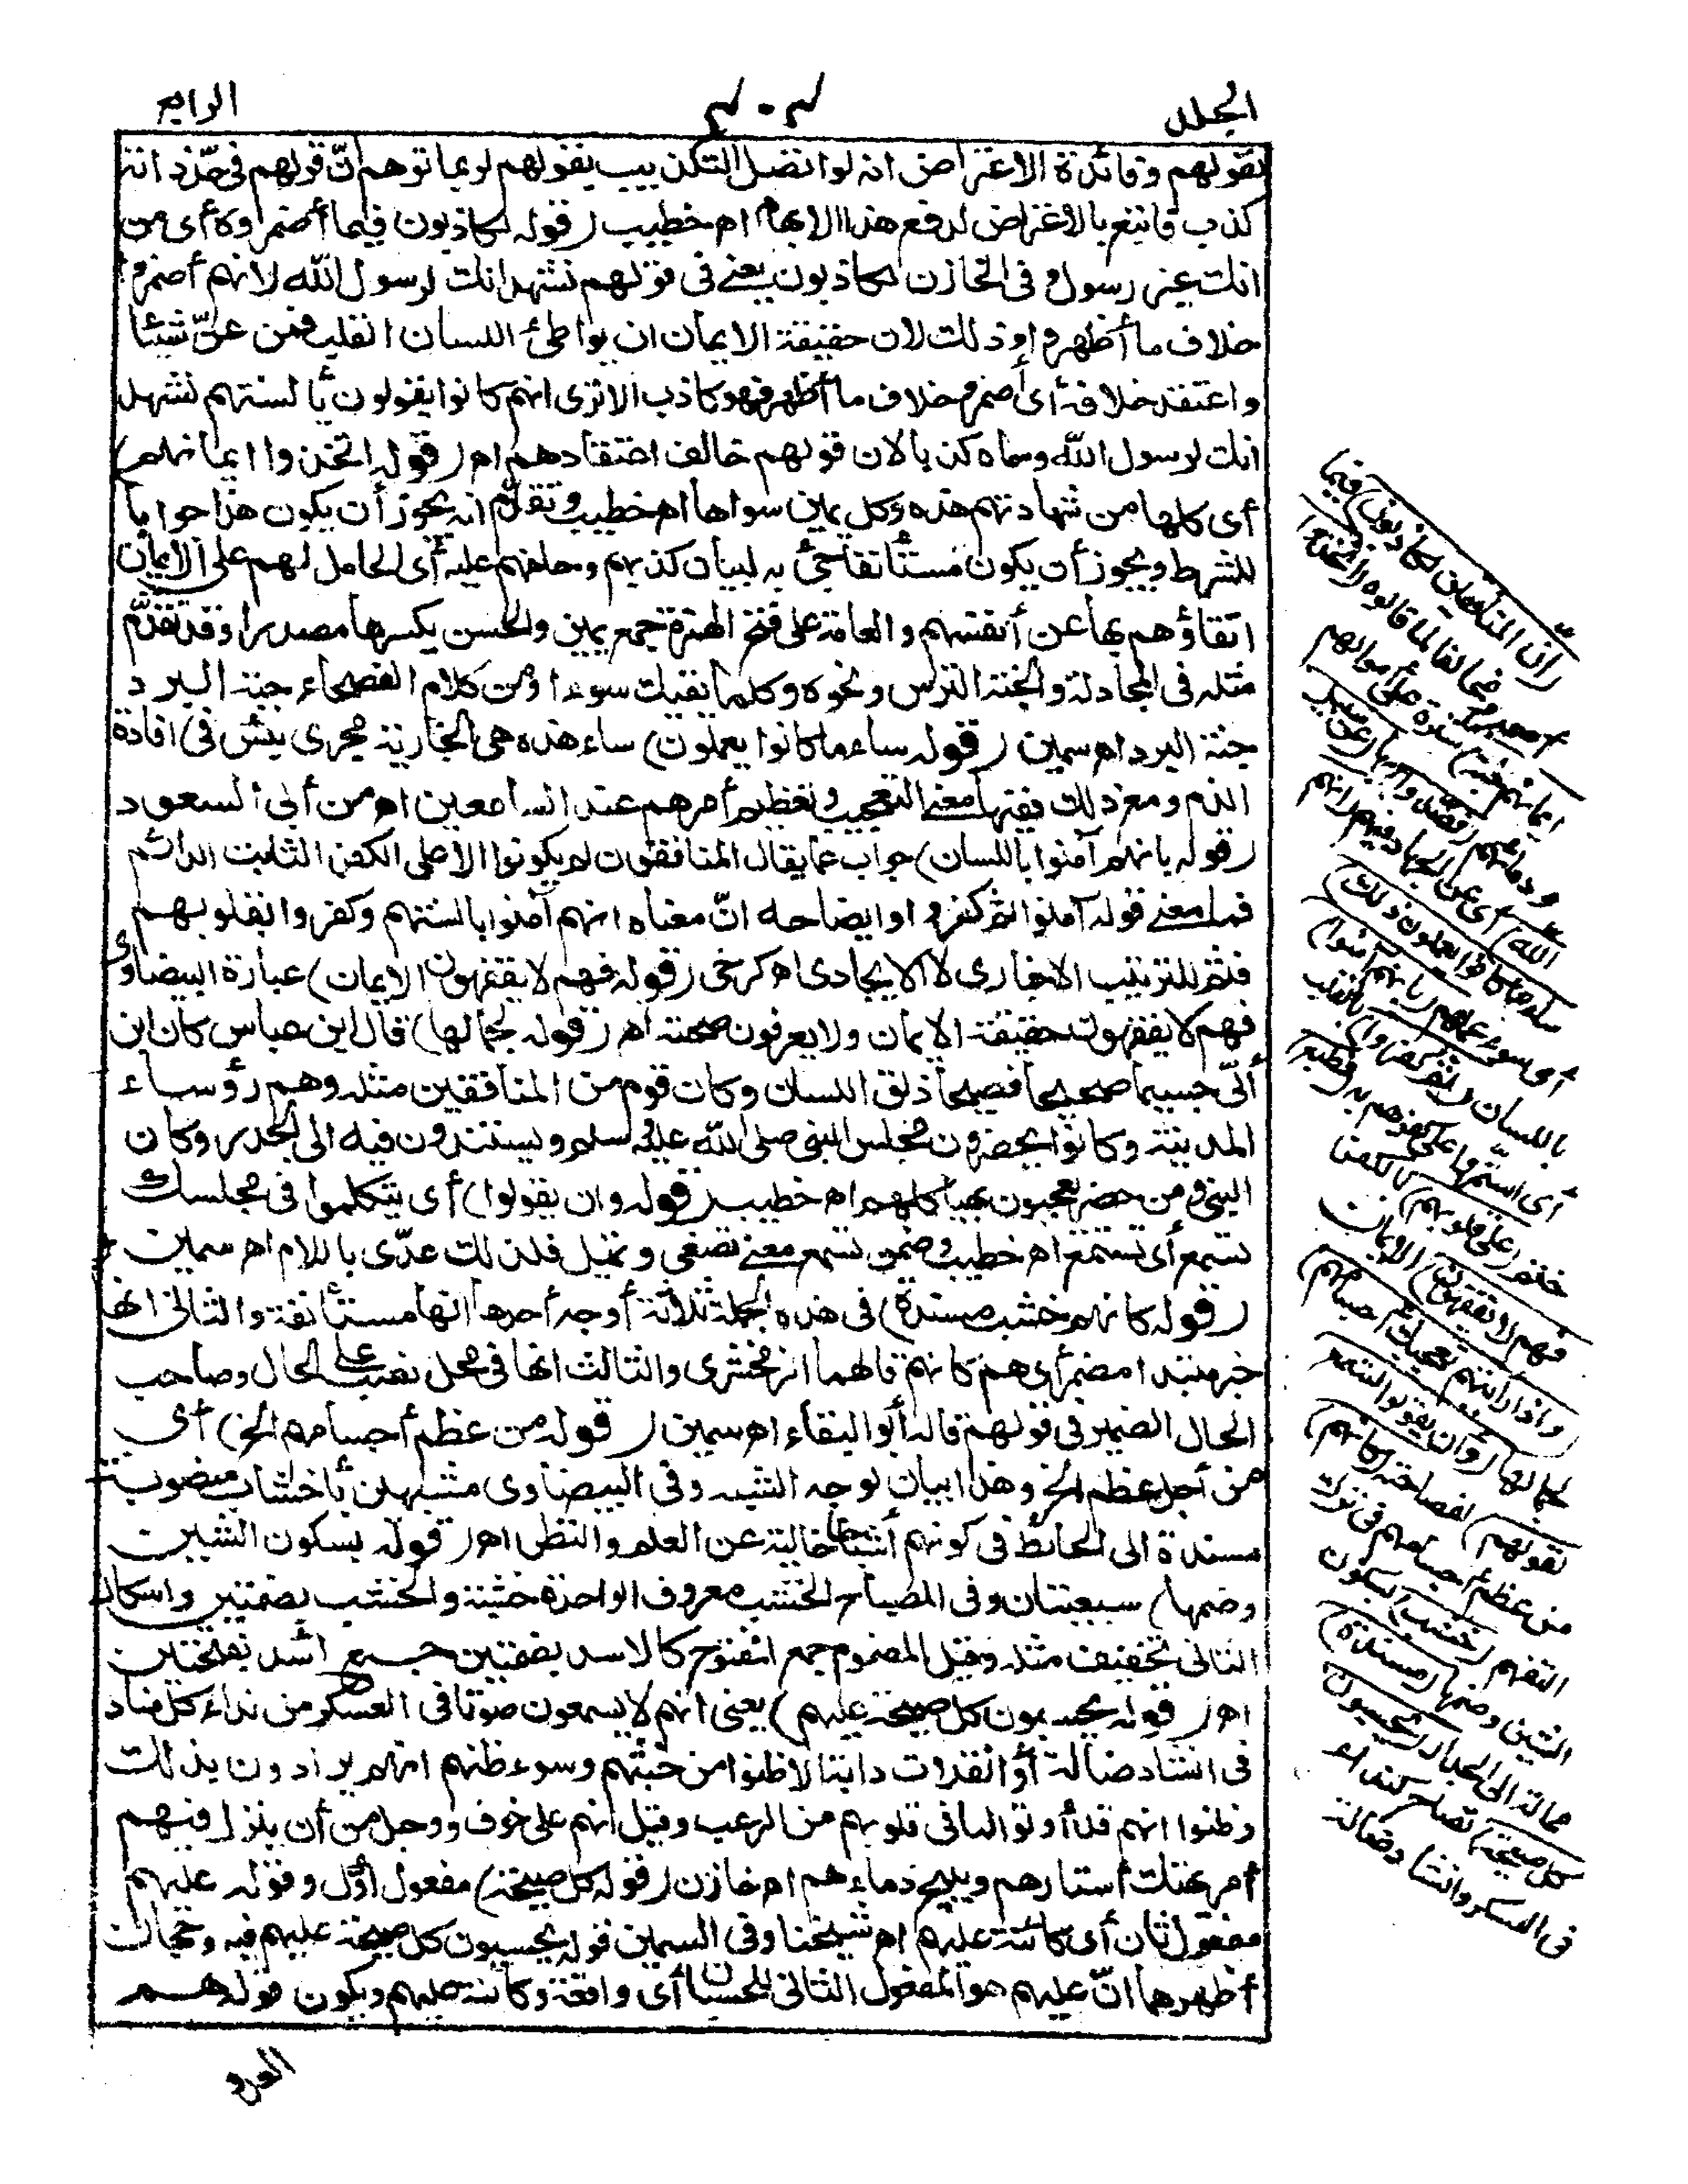 الجلد
الرابع
بقولهم وفائدة الاعتراض انه لو اتصل التكذيب بقولهم لربما توهم انّ قولهم في حدّ ذاته
كذب فأتى بالاعتراض لدفع هذا الايهام اه خطيب (قوله لكاذبون فيما أضمروه أي من
انك غير رسول وفي الخازن لكاذبون يعني في قولهم نشهد انك لرسول الله لانهم أضمروا
خلاف ما أظهروا وذلك لان حقيقة الايمان ان يواطئ اللسان القلب فمن شيئا
واعتقد خلافه أي أضمر خلاف ما أظهر فهو كاذب الا ترى انهم كانوا يقولون بألسنتهم نشهد
انك لرسول الله وسماه كذبا لان قولهم خالف اعتقادهم اه (قوله اتخذوا ايمانهم)
أي كلها من شهادتهم هذه وكل يمين سواها اه خطيب وتقدّم انه يجوز أن يكون هذا جوابا
للشرط ويجوز أن يكون مستأنفا جئ به لبيان كذبهم وحلفهم عليه أي الحامل لهم على الايمان
اتقاؤهم بها عن أنفسهم والعامة على فتح الهمزة جمع يمين والحسن بكسرها مصدرا وقد تقدّم
مثله في المجادلة والجنة الترس ونحوه وكلما يقيك سوءا ومن كلام الفصحاء جبة البرد
جنة البرد اه سمين (قوله ساء ما كانوا يعملون) ساء هذه هي الجارية مجرى بئس في افادة
الذم ومع ذلك ففيها معنى التعجيب وتعظيم أمرهم عند السامعين اه من أبي السعود
(قوله بانهم آمنوا باللسان) جواب عما يقال المنافقون لم يكونوا الا على الكفر الثابت الدائم
فما معنى قوله آمنوا ثم كفروا وايضاحه انّ معناه انهم آمنوا بألسنتهم وكفروا بقلوبهم
فثم للترتيب الاخباري لا الايجادي اه كرخي (قوله فهم لا يفقهون الايمان) عبارة البيضاوي
فهم لا يفقهون حقيقة الايمان ولا يعرفون صحته اه (قوله لجمالها) قال ابن عباس كان ابن
أبيّ جسيما صحيحا فصيحا ذلق اللسان وكان قوم من المنافقين مثله وهم رؤساء
المدينة وكانوا يحضرون مجلس النبي صلى الله عليه وسلم ويستندون فيه الى الجدر وكان
النبي ومن حضر يعجبون بهياكلهم اه خطيب (قوله وان يقولوا) أي يتكلموا في مجلسك
تسمع أي تستمع اه خطيب وضمن تسمع معنى تصغي وتميل فلذلك عدّى باللام اه سمين
(قوله كانهم خشب مسندة) في هذه الجملة ثلاثة أوجه أحدها انها مستأنفة والثاني انها
خبر مبتدا مضمر أي هم كانهم قالهما الزمخشري والثالث انها في محل نصب على الحال وصاحب
الحال الضمير في قولهم قاله أبو البقاء اه سمين (قوله من عظم أجسامهم الخ) أي
من أجل عظم الخ وهذا بيان لوجه الشبه وفي البيضاوي مشبهين بأخشاب منصوبة
مسندة الى الحائط في كونهم أشباحا خالية عن العلم والنظر اه (قوله بسكون الشين
وضمها) سبعيتان وفي المصباح الخشب معروف الواحدة خشبة والخشب بضمتين واسكان
الثاني تخفيف مثله وقيل المضموم جمع المفتوح كالاسد بضمتين جمع أسد بفتحتين
اه (قوله يحسبون كل صيحة عليهم) يعني انهم لا يسمعون صوتا في العسكر من نداء كل مناد
في انشاد ضالة أو انفلات دابة الا ظنوا من خبثهم وسوء ظنهم انهم يرادون بذلك
وظنوا انهم قد أوتوا لما في قلوبهم من الرعب وقيل انهم على خوف ووجل من أن ينزل فيهم
أمر يهتك أستارهم ويبيح دماءهم اه خازن (قوله كل صيحة) مفعول أوّل وقوله عليهم
مفعول ثان أي كائنة عليهم اه شيخنا وفي السمين قوله يحسبون كل صيحة عليهم فيه وجهان
أظهرهما انّ عليهم هو المفعول الثاني للحسبان أي واقعة وكائنة عليهم ويكون قوله هم
العدو
(انّ المنافقين لكاذبون) فيما
أضمروه مخالفا لما قالوه (اتخذوا
ايمانهم جنة) سترة على أموالهم
ودمائهم (فصدوا) بها (عن سبيل
الله) أي عن الجهاد فيهم (انهم
ساء ما كانوا يعملون ذلك)
أي سوء عملهم (بانهم آمنوا)
باللسان (ثم كفروا) بالقلب
أي استمروا على كفرهم به (فطبع)
ختم (على قلوبهم) بالكفر
(فهم لا يفقهون) الايمان
(واذا رأيتهم تعجبك أجسامهم)
لجمالها (وان يقولوا تسمع
لقولهم) لفصاحته (كانهم)
من عظم أجسامهم في ترك
التفهم (خشب) بسكون
الشين وضمها (مسندة)
ممالة الى الجدار (يحسبون
كل صيحة) تصاح كنداء
في العسكر وانشاد ضالة